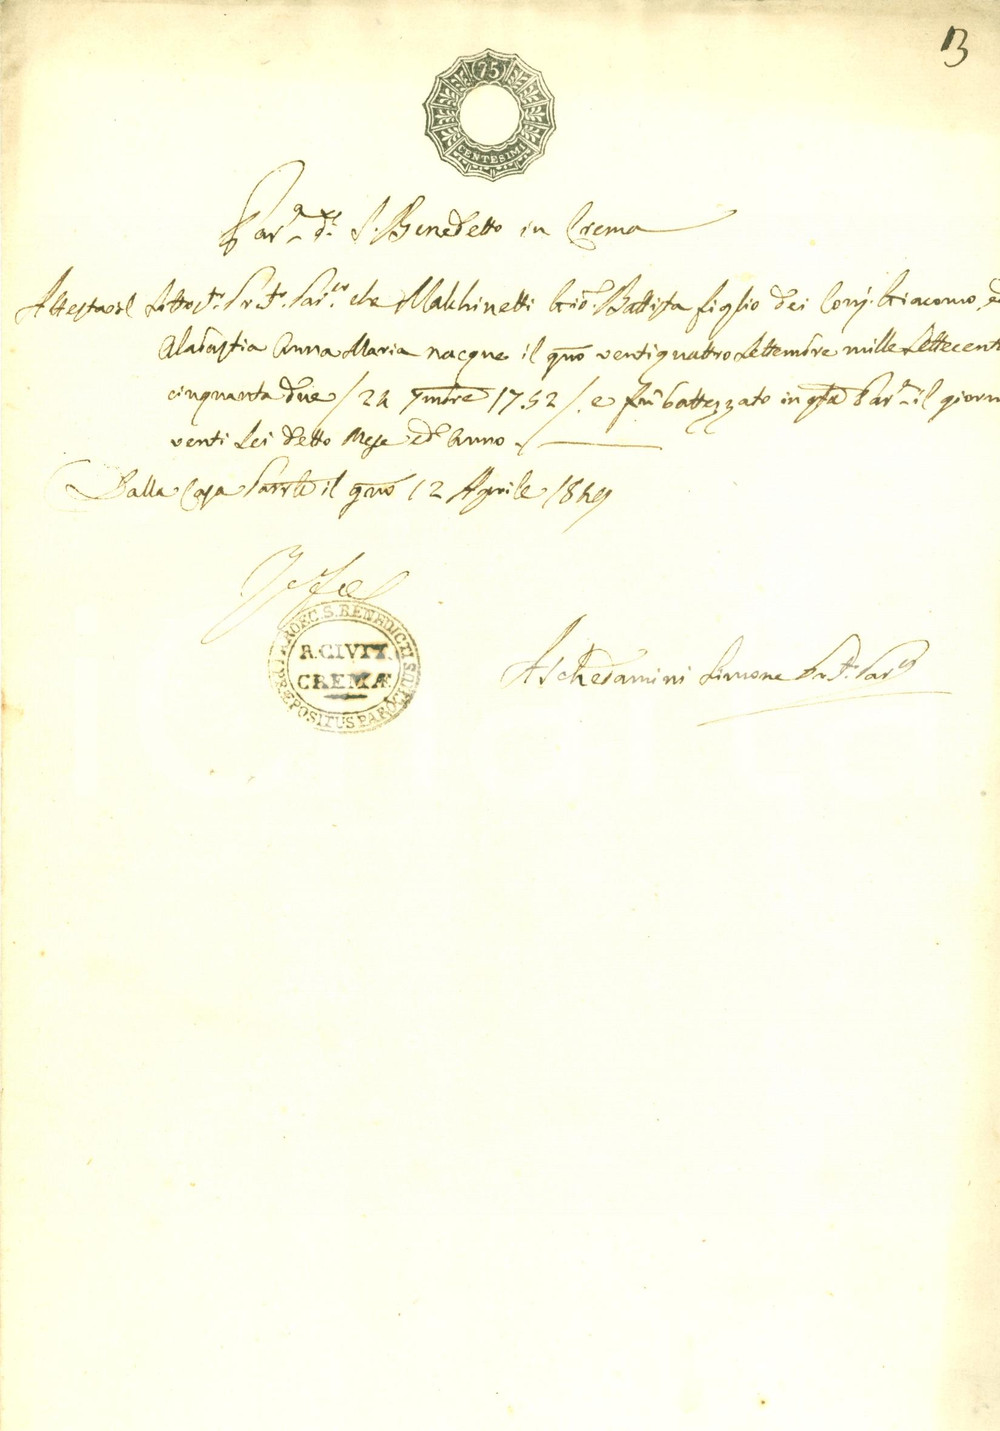 13
75
CENTESIMI
Par.a di S. Benedetto in Crema
Attesta il sottos.to Pr.to Par.co che Machinetti Gio. Battista figlio dei Conj. Giacomo, ed
Anna Maria nacque il gno ventiquattro Settembre mille settecento
cinquanta due / 24 7mbre 1752 /. e fu battezzato in qta Par.a il giorno
venti sei detto Mese ed Anno.
Dalla Casa Parrle il gno 12 Aprile 1849
PAROEC. S. BENEDICTI
R. CIVIT.
CREMÆ
PRÆPOSITUS PAROCHUS
Aschedamini Simone Pr.to Par.o